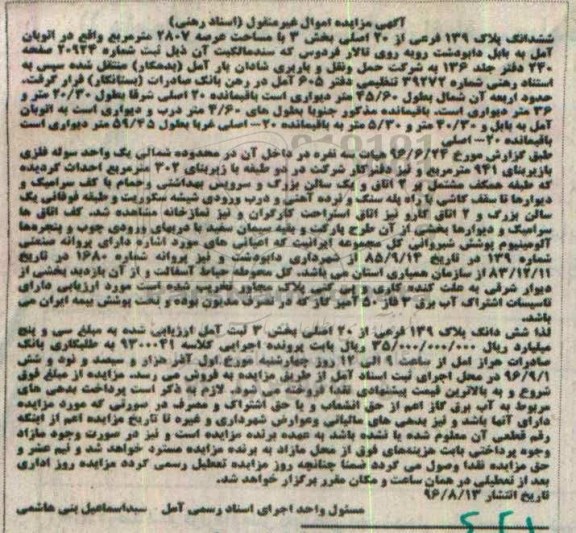 آگهی مزایده اموال غیرمنقول (اسناد رهنی)
ششدانگ پلاک ۱۳۹ فرعی از ۲۰ اصلی بخش ۳ با مساحت عرصه ۲۸۰۷ مترمربع واقع در اتوبان
آمل به بابل دابودشت روبه روی تالار فردوس که سندمالکیت آن ذیل ثبت شماره ۲۰۹۲۴ صفحه
۲۴۰ دفتر جلد ۱۳۶ به شرکت حمل ونقل و باربری شادان بار آمل (بدهکار) منتقل شده سپس به
استناد رهنی شماره ۲۹۲۷۲ تنظیمی دفتر ۶۰۵ آمل در رهن بانک صادرات (بستانکار) قرار گرفت.
حدود اربعه آن شمال بطول ۴۵/۶۰ متر دیواری است باقیمانده ۲۰ اصلی شرقا بطول ۲۰/۳۰ متر و
۳۶ متر دیواری است. باقیمانده مذکور جنوبا بطول های ۴/۶۰ متر درب و دیواری است به اتوبان
آمل به بابل و ۴۰/۳۰ متر و ۵/۳۰ متر به باقیمانده ۲۰- اصلی غربا بطول ۵۹/۴۵ متر دیواری است
باقیمانده ۲۰- اصلی
طبق گزارش مورخ ۹۶/۶/۲۴ هیات سه نفره در داخل آن در محدوده شمالی یک واحد سوله فلزی
بازیربنای ۹۴۱ مترمربع و نیز دفترکار شرکت در دو طبقه با زیربنای ۳۰۲ مترمربع احداث گردیده
که طبقه همکف مشتمل بر ۲ اتاق و یک سالن بزرگ و سرویس بهداشتی وحمام با کف سرامیک و
دیوارها تا سقف کاشی با راه پله سنگ و نرده آهنی و درب ورودی شیشه سکوریت و طبقه فوقانی یک
سالن بزرگ و ۲ اتاق کارو نیز اتاق استراحت کارگران و نیز نمازخانه مشاهده شد. کف اتاق ها
سرامیک و دیوارها بخشی از آن طرح پارکت و بقیه سیمان سفید با دربهای ورودی چوب و پنجره‌ها
آلومینیوم پوشش شیروانی کل مجموعه ایرانیت که اعیانی های مورد اشاره دارای پروانه صنعتی
شماره ۱۳۹ در تاریخ ۸۵/۹/۱۴ شهرداری دابودشت و نیز پروانه شماره ۱۶۸۰ در تاریخ
۸۳/۱۲/۱۱ از سازمان همیاری استان می باشد. کل محوطه حیاط آسفالت و از آن بازدید بخشی از
دیوار شرقی به علت کنده کاری و گودبرداری پلاک مجاور تخریب شده است مورد ارزیابی دارای
تاسیسات اشتراک آب برق ۳ فاز ۵۰ آمپر گاز که در تصرف مدیون بوده و تحت پوشش بیمه ایران می
باشد.
لذا شش دانگ پلاک ۱۳۹ فرعی از ۲۰ اصلی بخش ۳ ثبت آمل ارزیابی شده به مبلغ سی و پنج
میلیارد ریال ۳۵/۰۰۰/۰۰۰/۰۰۰ ریال بابت پرونده اجرایی کلاسه ۹۳۰۰۰۴۱ به طلبکاری بانک
صادرات هراز آمل از ساعت ۹ الی ۱۲ روز چهارشنبه مورخ اول آذر هزار و سیصد و نود و شش
۹۶/۹/۱ در محل اجرای ثبت اسناد آمل از طریق مزایده به فروش می رسد. مزایده از مبلغ فوق
شروع و به بالاترین قیمت پیشنهادی نقدا فروخته می شود. لازم به ذکر است پرداخت بدهی های
مربوط به آب برق گاز اعم از حق انشعاب و یا حق اشتراک و مصرف در صورتی که مورد مزایده
دارای آنها باشد و نیز بدهی های مالیاتی وعوارض شهرداری و غیره تا تاریخ مزایده اعم از اینکه
رقم قطعی آن معلوم شده یا نشده باشد به عهده برنده مزایده است و نیز در صورت وجود مازاد
وجوه پرداختی بابت هزینه‌های فوق از محل مازاد به برنده مزایده مسترد خواهد شد و نیم عشر و
حق مزایده نقدا وصول می گردد ضمنا چنانچه روز مزایده تعطیل رسمی گردد مزایده روز اداری
بعد از تعطیلی در همان ساعت و مکان مقرر برگزار خواهد شد.
تاریخ انتشار ۹۶/۸/۱۳
مسئول واحد اجرای اسناد رسمی آمل - سیداسماعیل بنی هاشمی